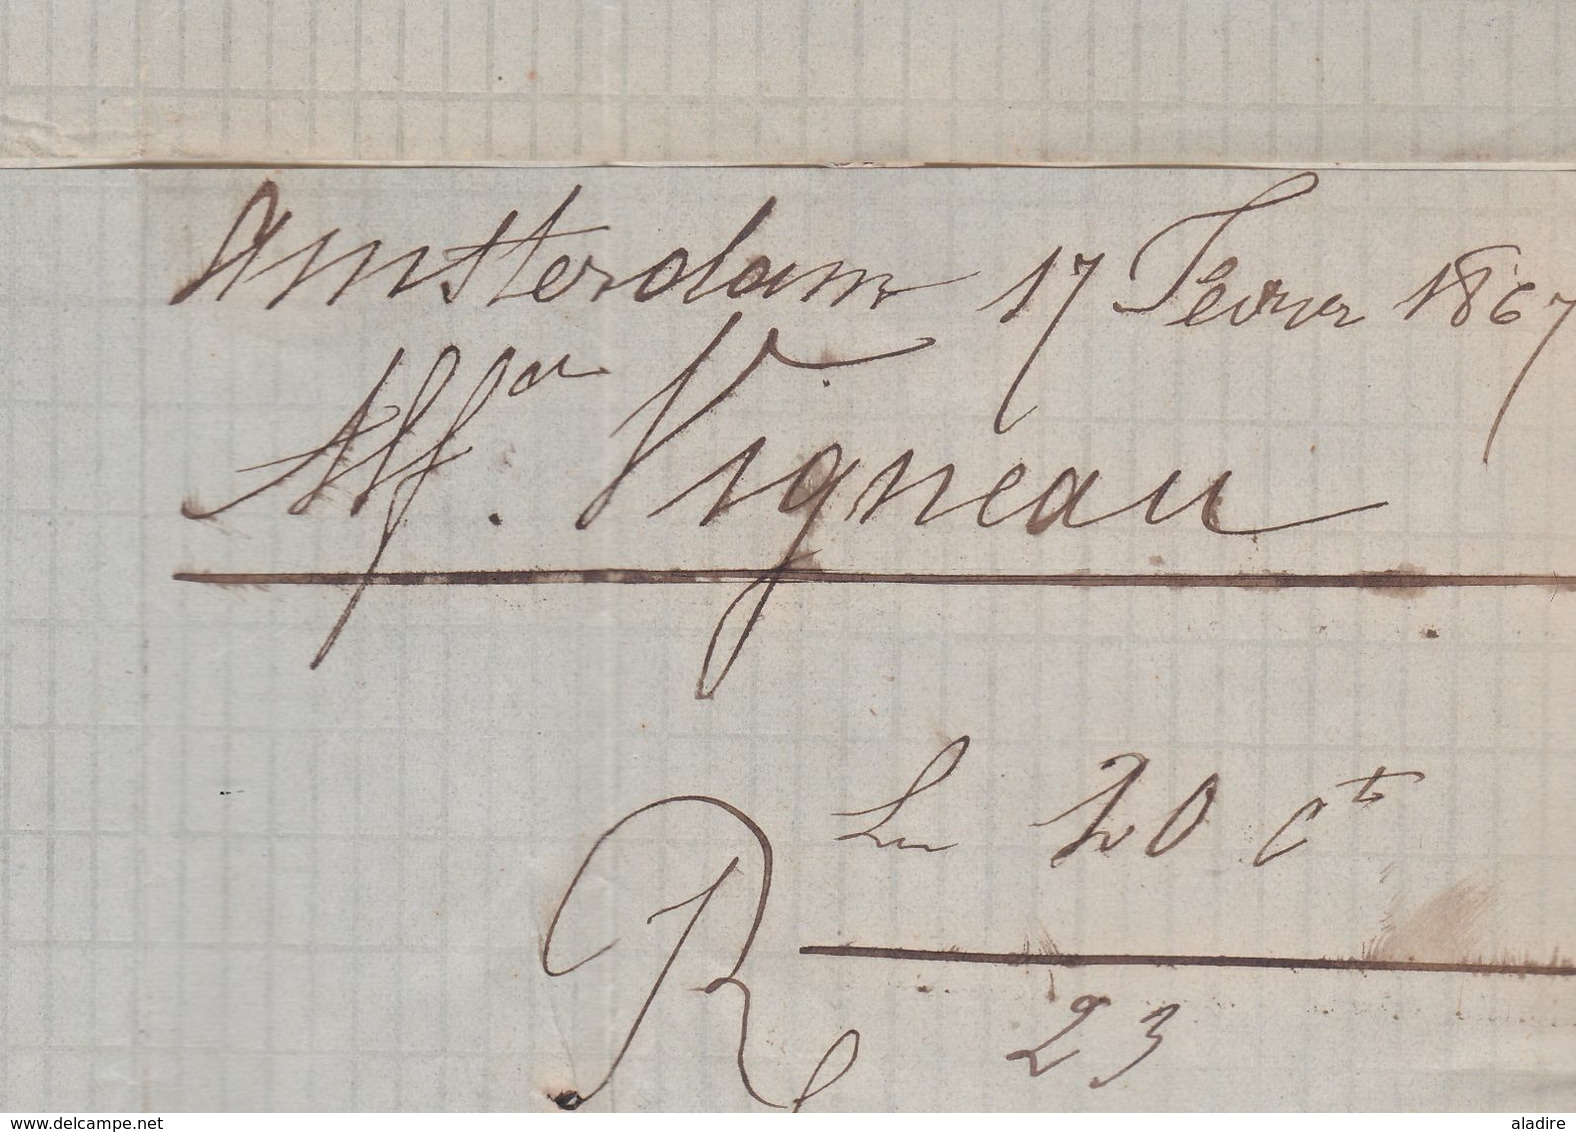 Amsterdam 17 Fevrier 1867
Alf. Vigneau
Le 20 cts
R
23
www.delcampe.net
aladire